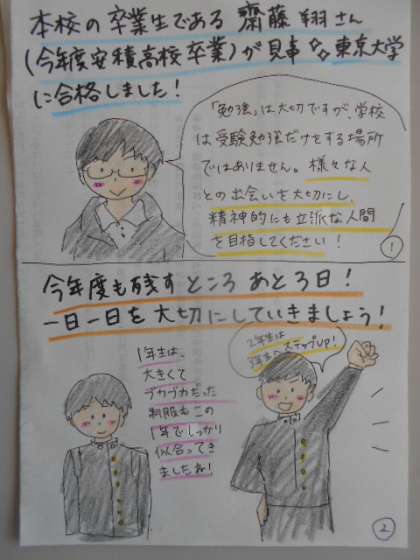 本校の卒業生である 齋藤 翔さん
(今年度安積高校卒業)が見事な東京大学
に合格しました!
「勉強」は大切ですが、学校
は受験勉強だけをする場所
ではありません。様々な人
との出会いを大切にし、
精神的にも立派な人間
を目指してください!
1
今年度も残すところ あと3日!
一日一日を大切にしていきましょう!
1年生は、
大きくて
ブカブカだった
制服もこの
1年でしっかり
似合ってき
ましたね!
2年生は
3年生へステップUP!
2